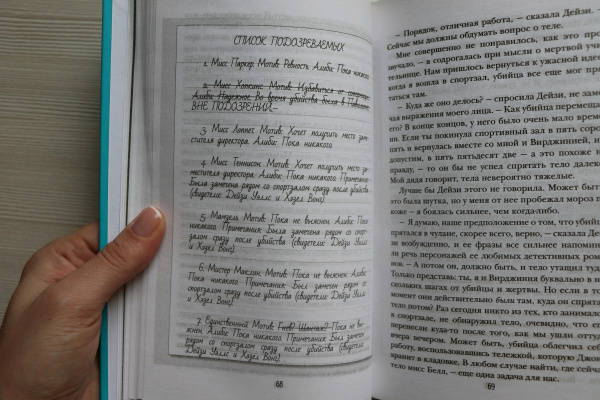 СПИСОК ПОДОЗРЕВАЕМЫХ
1. Мисс Паркер. Мотив: Ревность. Алиби: Пока никакого.
2. Мисс Хопкинс. Мотив: Избавиться от соперницы.
Алиби: Надежное. Во время убийства была в
ВНЕ ПОДОЗРЕНИЙ.
3. Мисс Лаппет. Мотив: Хочет получить место заме-
стителя директора. Алиби: Пока никакого.
4. Мисс Теннисон. Мотив: Хочет получить место за-
местителя директора. Алиби: Пока никакого. Примечания:
Была замечена рядом со спортзалом сразу после убийства
(свидетели: Дейзи Уэллс и Хэзел Вонг).
5. Мамзель. Мотив: Пока не выяснен. Алиби: Пока
никакого. Примечания: Была замечена рядом со спорт-
залом сразу после убийства (свидетели: Дейзи Уэллс
и Хэзел Вонг).
6. Мистер Маклин. Мотив: Пока не выяснен. Алиби:
Пока никакого. Примечания: Был замечен рядом со
спортзалом сразу после убийства (свидетели: Дейзи Уэллс
и Хэзел Вонг).
7. Единственный. Мотив: Гнев? Шантаж? Пока не вы-
яснен. Алиби: Пока никакого. Примечания: Был замечен
рядом со спортзалом сразу после убийства (свидетели:
Дейзи Уэллс и Хэзел Вонг).
68
— Порядок, отличная работа, — сказала Дейзи. —
Сейчас мы должны обдумать вопрос о теле.
Мне совершенно не понравилось, как это про-
звучало, — я содрогалась при мысли о мертвой учи-
тельнице. Нам пришлось вернуться к ужасной идее
когда я вошла в спортзал, убийца все еще мог пря-
таться там.
— Куда же оно делось? — спросила Дейзи, не заме-
чая выражения моего лица. — Как убийца перемещал
его? В конце концов, у него было очень мало времени.
Если ты покинула спортивный зал в пять сорок
и вернулась вместе со мной и Вирджинией,
допустим, в пять пятьдесят две — а это похоже на
правду, — то он бы не успел спрятать тело далеко.
Мой дядя говорит, тела невероятно тяжелые.
Лучше бы Дейзи этого не говорила. Может быть,
это была шутка, но у меня от нее пробежал мороз по
коже — я боялась сильнее, чем когда-либо.
— Я думаю, наше предположение о том, что убийца
прятался в чулане, скорее всего, верно, — сказала Дейзи
в возбуждении, и ее фразы все сильнее напоминали
речь персонажей ее любимых детективных романов.
— А потом он, должно быть, и тело утащил туда.
Только представь: ты и Вирджиния буквально в не-
скольких шагах от убийцы и жертвы. Но если в тот
момент они действительно были там, куда он спрятал
тело потом? Раз сегодня никто из тех, кто занимался
в спортзале, не обнаружил тело, очевидно, что его
перенесли куда-то после того, как мы ушли оттуда
вчера вечером. Может быть, убийца облегчил себе
работу, воспользовавшись тележкой, которую
в кладовке. В любом случае найти, где сейчас
тело мисс Белл, — еще одна задача для нас.
69